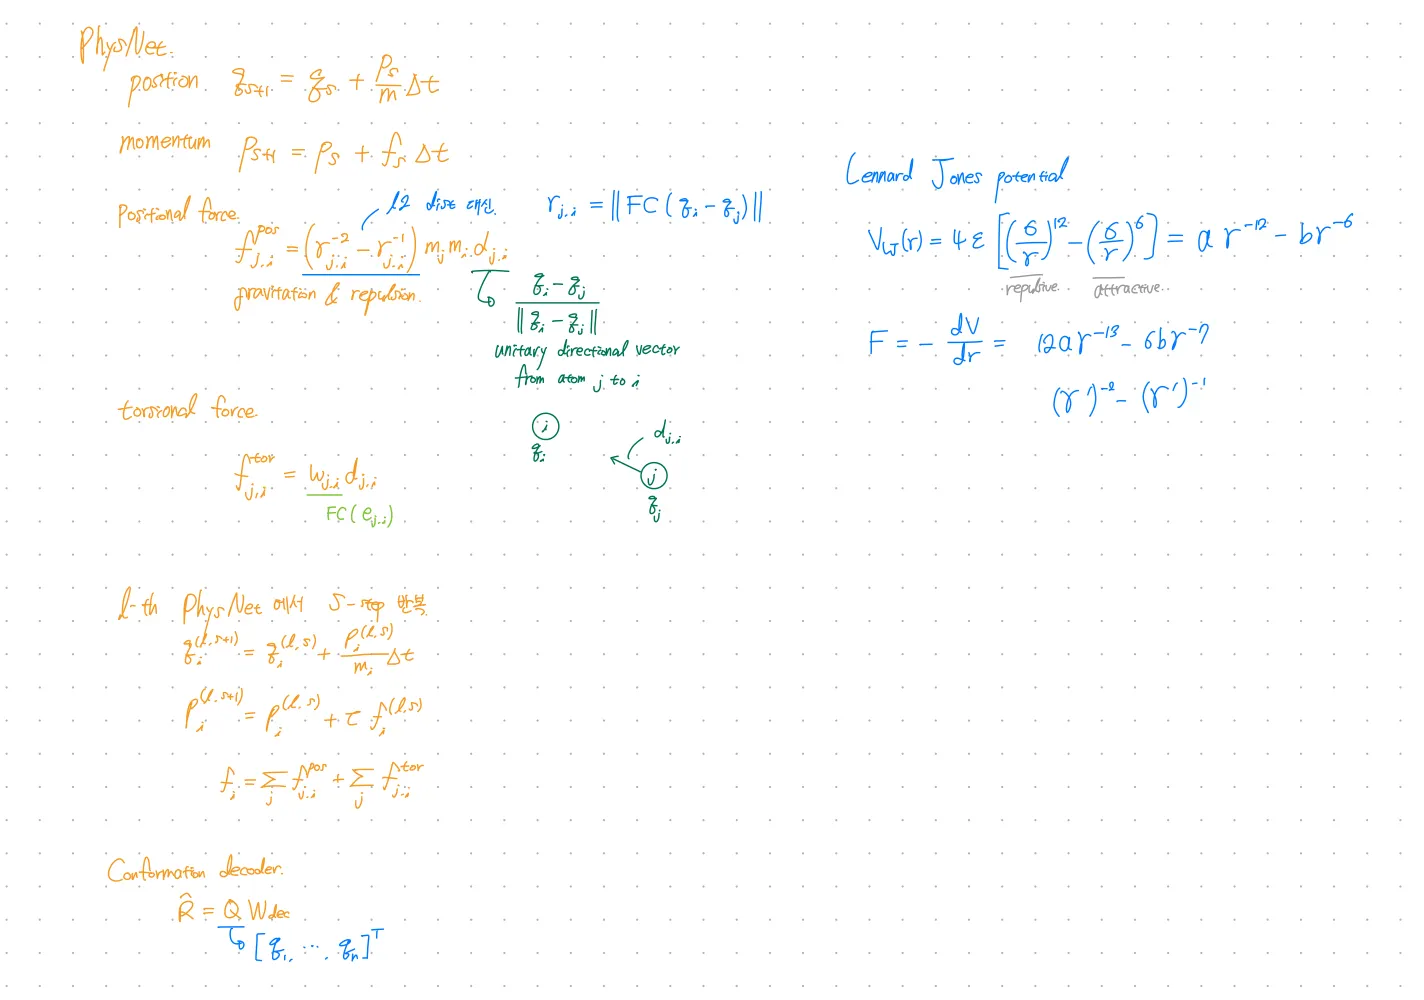 PhysNet.
position q_{s+1} = q_s + \frac{p_s}{m} Δt
momentum p_{s+1} = p_s + f_s Δt
positional force.
l2 dist 대신. r_{j,i} = || FC(q_i - q_j) ||
f_{j,i}^{pos} = (r_{j,i}^{-2} - r_{j,i}^{-1}) m_j m_i d_{j,i}
gravitation & repulsion.
\frac{q_i - q_j}{|| q_i - q_j ||}
unitary directional vector
from atom j to i
torsional force.
i
q_i
d_{j,i}
j
q_j
f_{j,i}^{tor} = w_{j,i} d_{j,i}
FC(e_{j,i})
l-th PhysNet 에서 S-step 반복
q_i^{(l,s+1)} = q_i^{(l,s)} + \frac{p_i^{(l,s)}}{m_i} Δt
p_i^{(l,s+1)} = p_i^{(l,s)} + τ f_i^{(l,s)}
f_i = Σ_j f_{j,i}^{pos} + Σ_j f_{j,i}^{tor}
Conformation decoder.
\hat{R} = Q W_{dec}
[q_1, ..., q_n]^T
Lennard Jones potential
V_{LJ}(r) = 4ε [(\frac{σ}{r})^{12} - (\frac{σ}{r})^6] = a r^{-12} - b r^{-6}
repulsive. attractive.
F = - \frac{dV}{dr} = 12ar^{-13} - 6br^{-7}
(r')^{-2} - (r')^{-1}